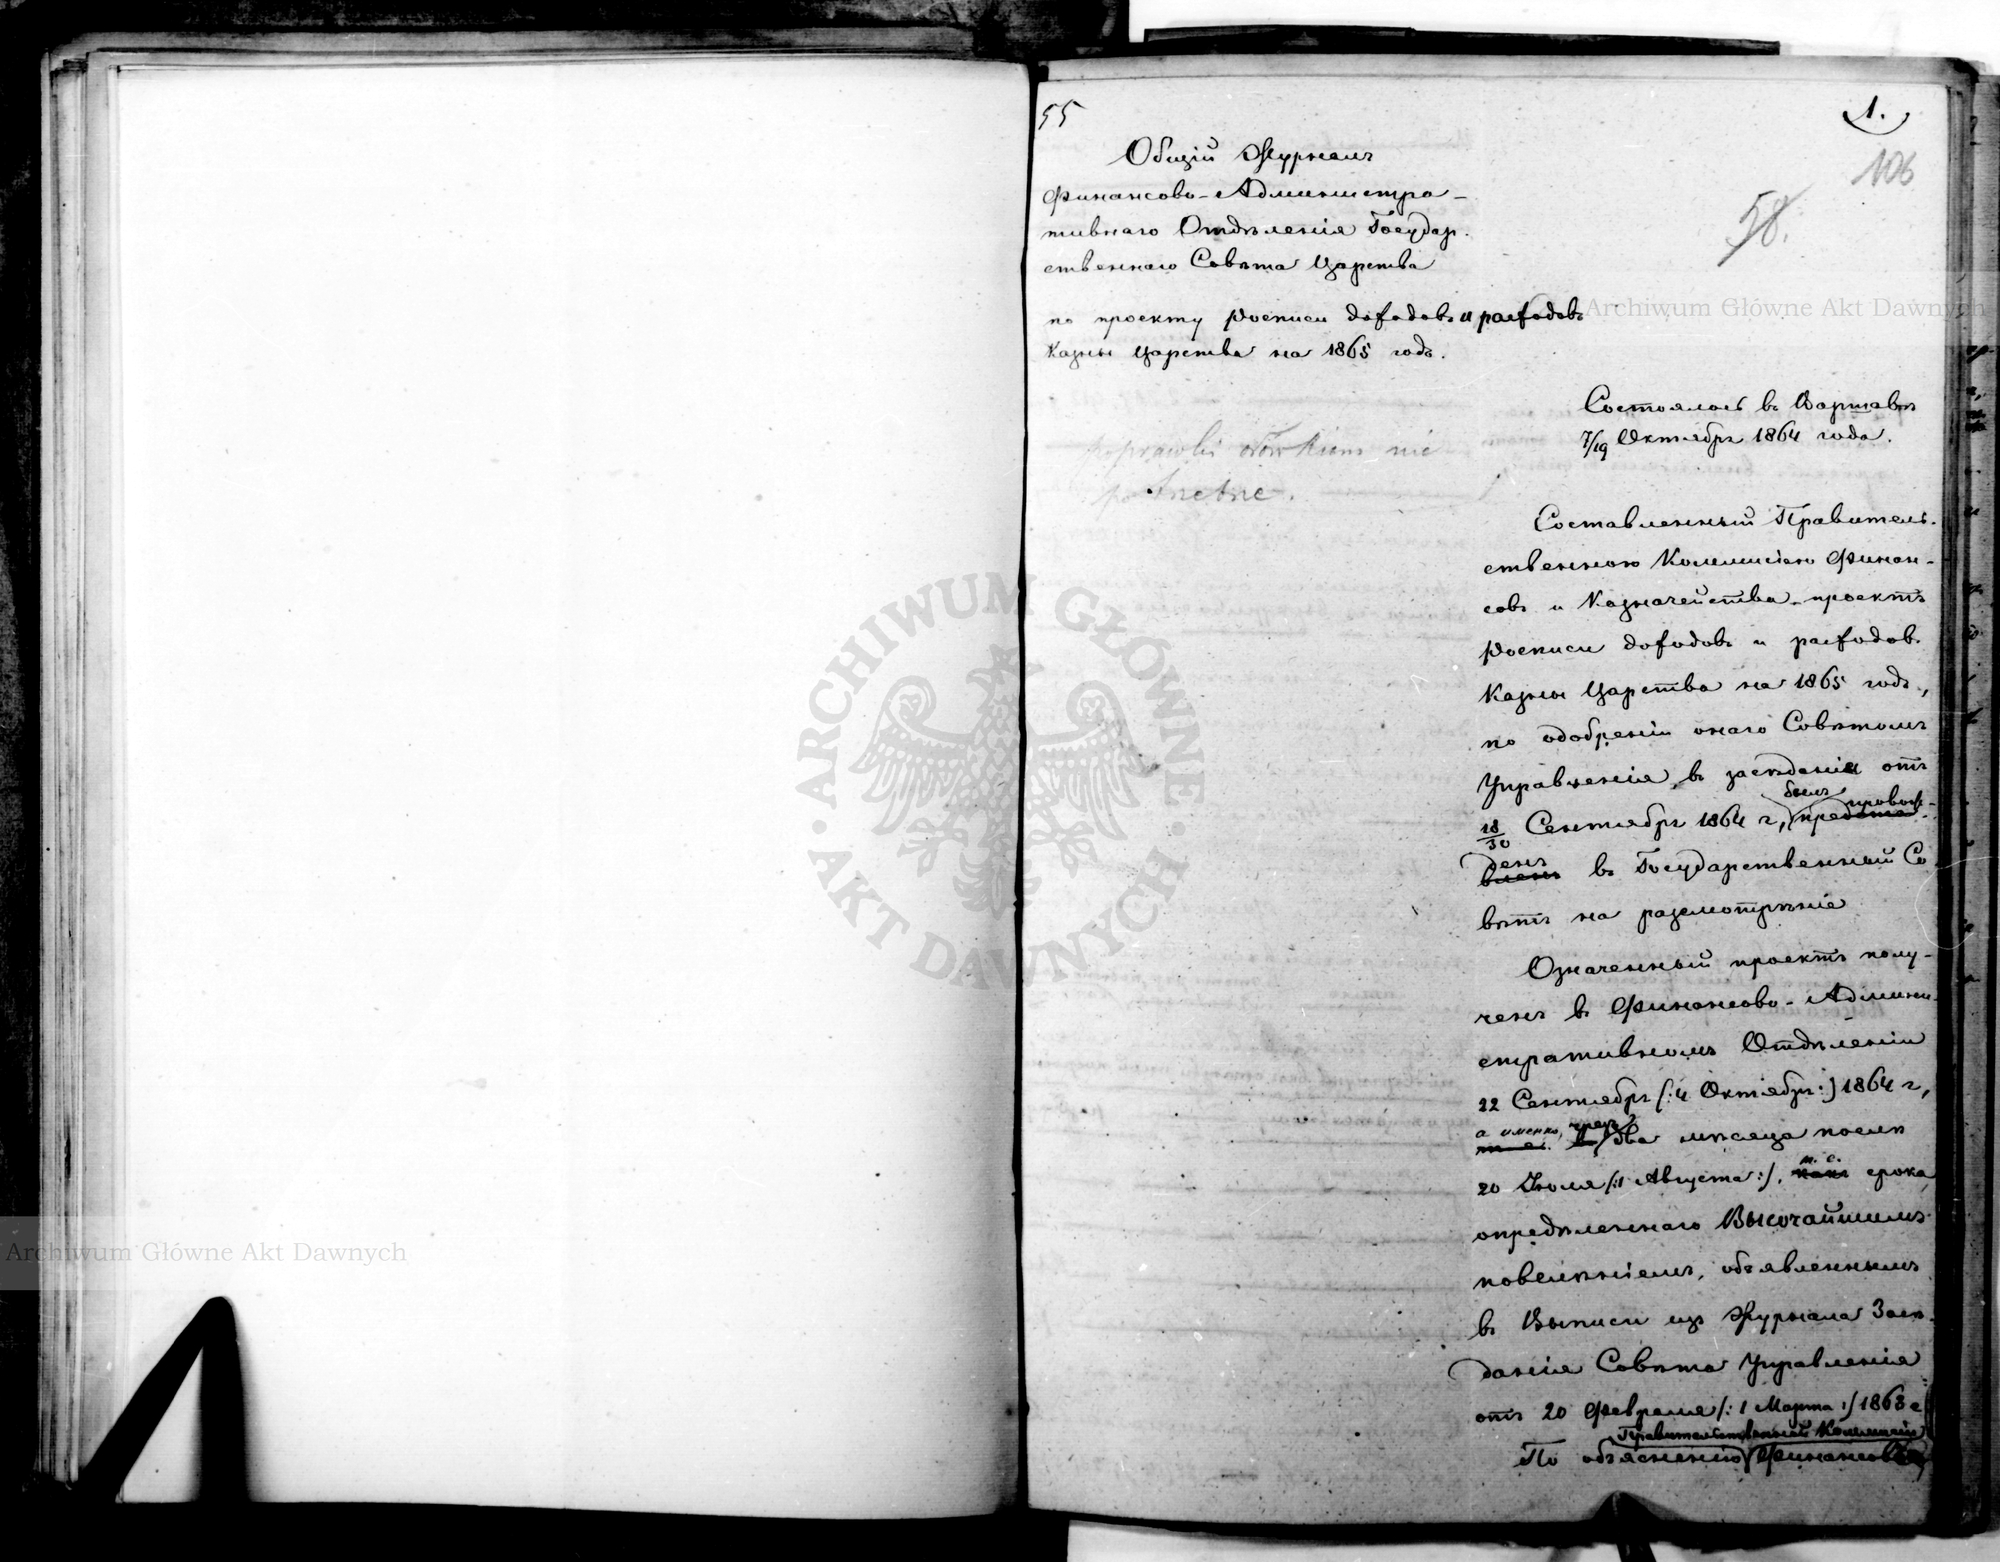 55
1.
106
58.
Общій Журналъ
Финансово-Администра-
тивнаго Отдѣленія Государ-
ственнаго Совѣта Царства
по проекту росписи доходовъ и расходовъ
Казны Царства на 1865 годъ.
Состоялось въ Варшавѣ
7/19 Октября 1864 года.
poprawki ołówkiem nie
Составленный Правитель-
ственною Коммисіею Финан-
совъ и Казначейства проектъ
росписи доходовъ и расходовъ
Казны Царства на 1865 годъ,
по одобреніи онаго Совѣтомъ
Управленія, въ засѣданіи отъ
былъ препровож-
18/30 Сентября 1864 г., предста-
денъ
вленъ въ Государственный Со-
вѣтъ на разсмотрѣніе
Означенный проектъ полу-
ченъ въ Финансово-Админи-
стративномъ Отдѣленіи
22 Сентября (:4 Октября:) 1864 г.,
а именно, чрезъ
т. е. два мѣсяца послѣ
т. е.
20 Іюля (:1 Августа:), срока
опредѣленнаго Высочайшимъ
повелѣніемъ, объявленнымъ
въ Выписи изъ Журнала Засѣ-
данія Совѣта Управленія
отъ 20 Февраля (:1 Марта:) 1863 г.
Правительственной Коммисіи
По объясненію Финансовъ
Archiwum Główne Akt Dawnych
Archiwum Główne Akt Dawnych
ARCHIWUM GŁÓWNE
AKT DAWNYCH